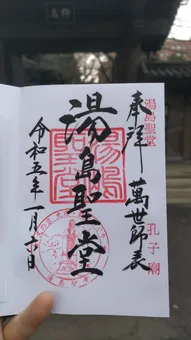 湯島聖堂
奉拝 萬世師表
孔子廟
湯島聖堂
湯島聖堂
令和五年一月六日